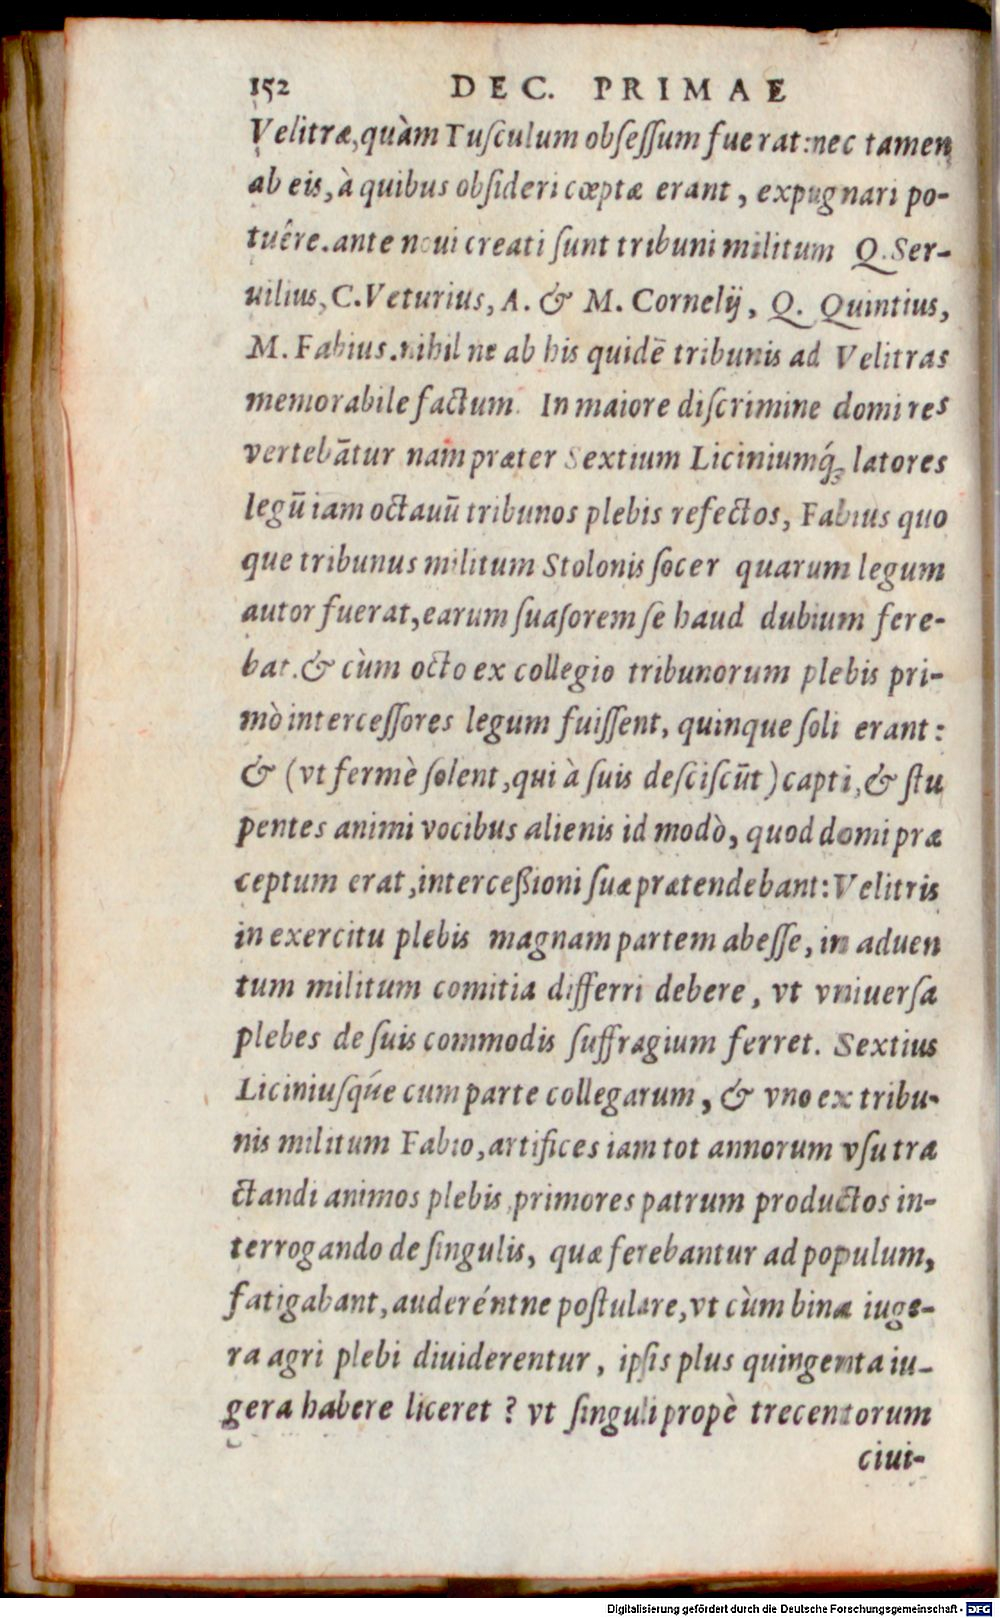 152 DEC. PRIMAE
Velitræ, quàm Tuſculum obſeſſum fuerat: nec tamen
ab eis, à quibus obſideri cœptæ erant, expugnari po-
tuêre. ante noui creati ſunt tribuni militum Q. Ser-
uilius, C. Veturius, A. & M. Cornelij, Q. Quintius,
M. Fabius. nihil ne ab his quidē tribunis ad Velitras
memorabile factum. In maiore diſcrimine domi res
vertebātur nam præter Sextium Liciniumq́; latores
legū iam octauū tribunos plebis refectos, Fabius quo
que tribunus militum Stolonis ſocer quarum legum
autor fuerat, earum ſuaſorem ſe haud dubium fere-
bat. & cùm octo ex collegio tribunorum plebis pri-
mò interceſſores legum fuiſſent, quinque ſoli erant:
& (vt fermè ſolent, qui à ſuis deſciſcūt) capti, & ſtu
pentes animi vocibus alienis id modò, quod domi præ
ceptum erat, interceßioni ſuæ prætendebant: Velitris
in exercitu plebis magnam partem abeſſe, in aduen
tum militum comitia differri debere, vt vniuerſa
plebes de ſuis commodis ſuffragium ferret. Sextius
Liciniuſqúe cum parte collegarum, & vno ex tribu-
nis militum Fabio, artifices iam tot annorum vſu tra
ctandi animos plebis, primores patrum productos in-
terrogando de ſingulis, quæ ferebantur ad populum,
fatigabant, auderéntne poſtulare, vt cùm bina iuge-
ra agri plebi diuiderentur, ipſis plus quingenta iu-
gera habere liceret? vt ſinguli propè trecentorum
ciui-
Digitalisierung gefördert durch die Deutsche Forschungsgemeinschaft - DFG